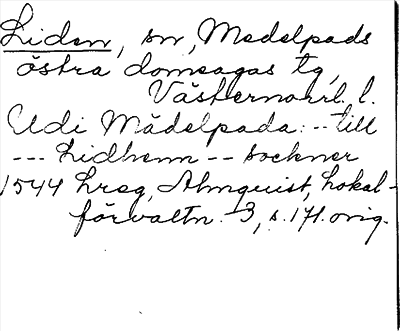 Liden, sn, Medelpads
östra domsagas tg,
Västernorrl. l.
Udi Mädelpada: -- till
--- Lidhenn -- sockner
1544 Lreg, Almquist, Lokal-
förvaltn. 3, s. 171. orig.